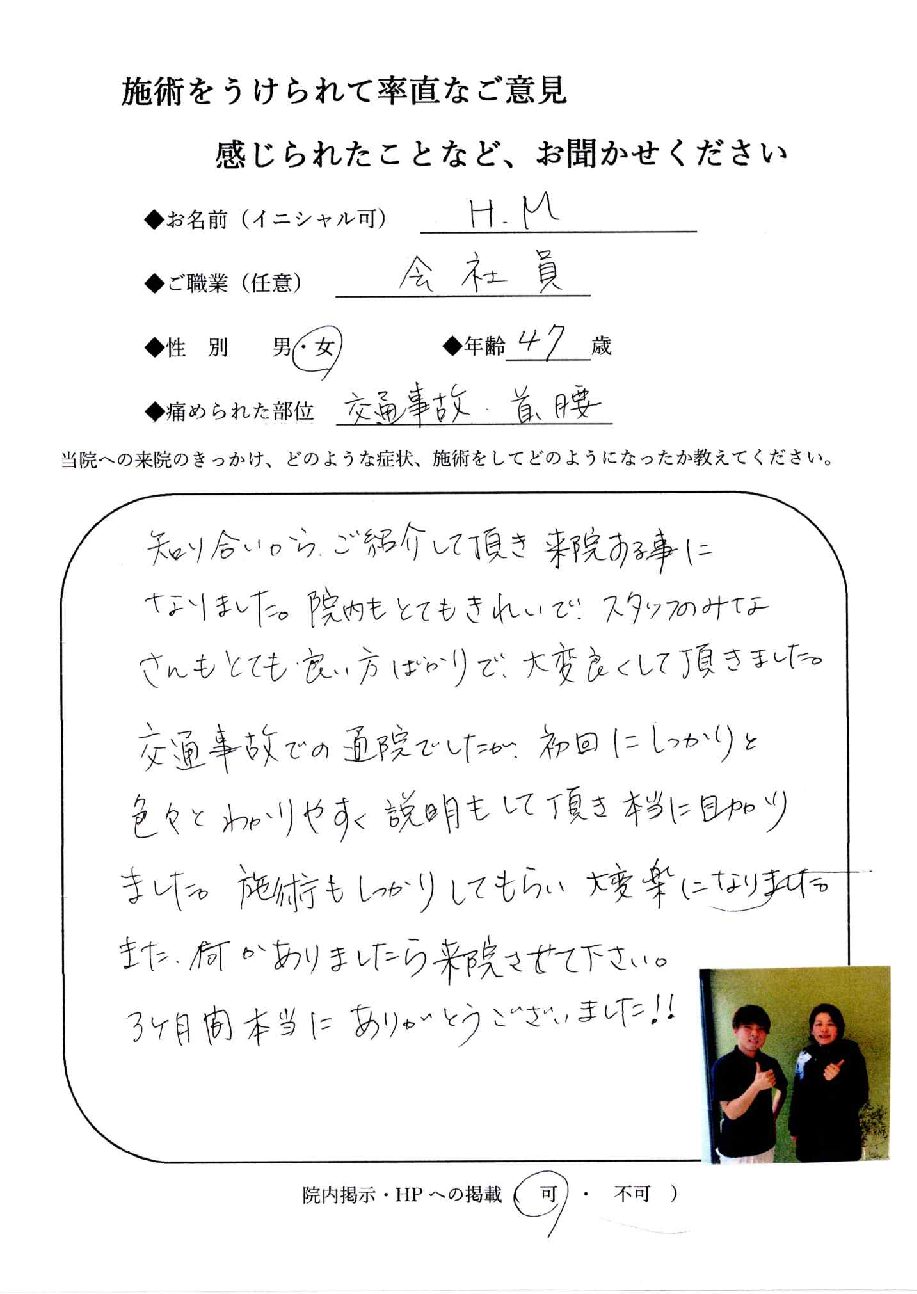 施術をうけられて率直なご意見
感じられたことなど、お聞かせください
◆お名前（イニシャル可） H.M
◆ご職業（任意） 会社員
◆性　別　　男・女　　◆年齢 47 歳
◆痛められた部位 交通事故・首、腰
当院への来院のきっかけ、どのような症状、施術をしてどのようになったか教えてください。
知り合いから、ご紹介して頂き 来院ある事に
なりました。院内もとてもきれいで、スタッフのみな
さんもとても良い方ばかりで、大変良くして頂きました。
交通事故での通院でしたが、初回にしっかりと
色々とわかりやすく説明もして頂き本当に助かり
ました。施術もしっかりしてもらい 大変楽になりました。
また、何かありましたら来院させて下さい。
3ヶ月間本当にありがとうございました!!
院内掲示・HPへの掲載（　可　・　不可　）